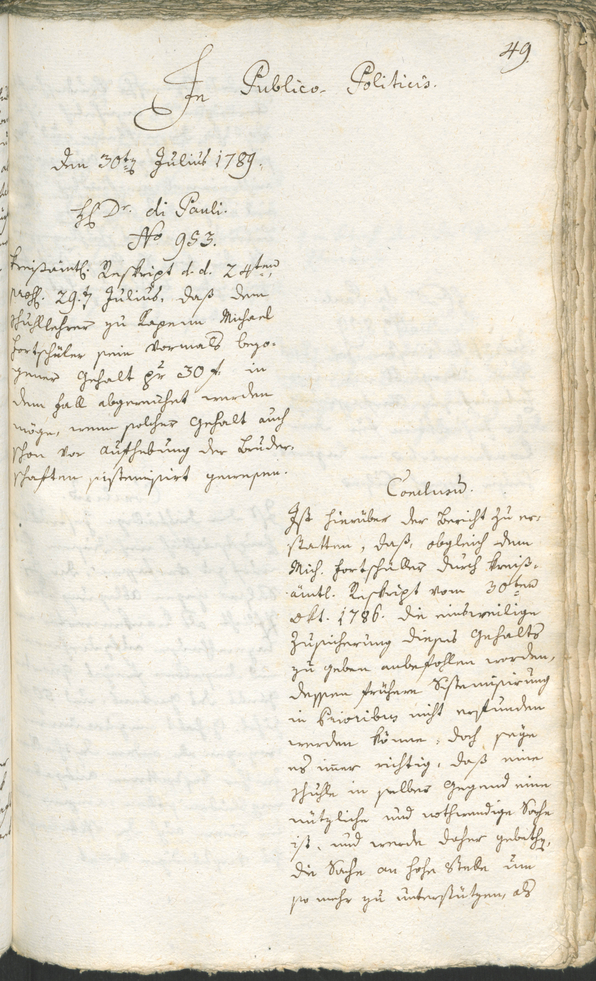 49
In Publico-Politicis.
den 30ten Julius 1789.
H Dr. di Pauli.
No 953.
Kreisämtl. Reskript d. d. 24ten,
29. Julius, daß dem
Schullehrer zu Michael
Fortschüler sein vormals bezo-
gener Gehalt pr 30 f in
dem Fall abgereichet werden
möge, wenn solcher Gehalt auch
schon vor Aufhebung der Bruder-
schaften sistemisirt gewesen.
Conclusum.
Ist hierüber der Bericht zu er-
statten, daß, obgleich dem
Mich. Fortschüller durch kreis-
ämtl. Reskript vom 30ten
Okt. 1786. die einsweilige
Zusicherung dieses Gehalts
zu geben anbefohlen worden,
dessen frühere Sistemisirung
in Prioribus nicht erfunden
werden könne, doch seye
es immer richtig, daß eine
Schulle in selber Gegend eine
nützliche und nothwendige Sache
ist, und werde daher gebethen,
die Sache an hohe Stelle um
so mehr zu unterstützen, als